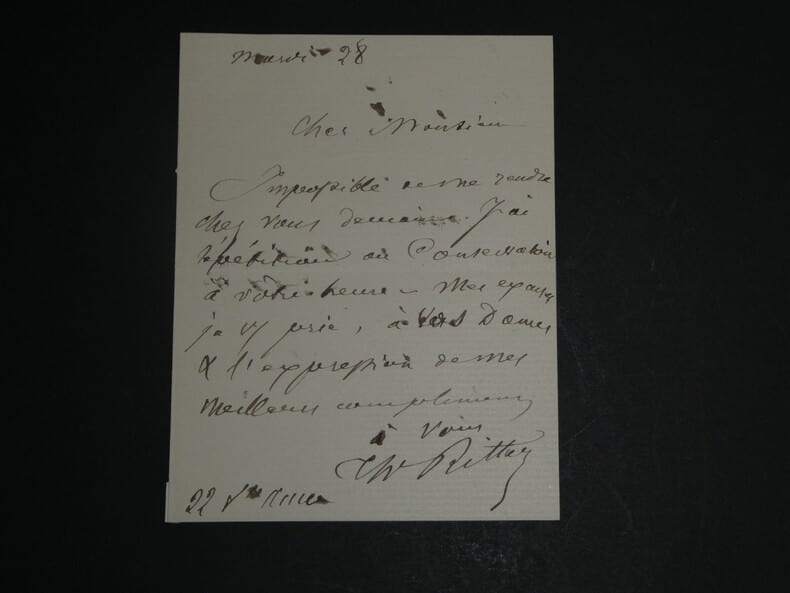 Mardi 28
Cher Monsieur
Impossible de me rendre
chez vous demain. J'ai
répétition au Conservatoire
à votre heure – Mes excuses
je v prie, à vos Dames
& l'expression de mes
meilleurs compliments
à vous
Th Ritter
22